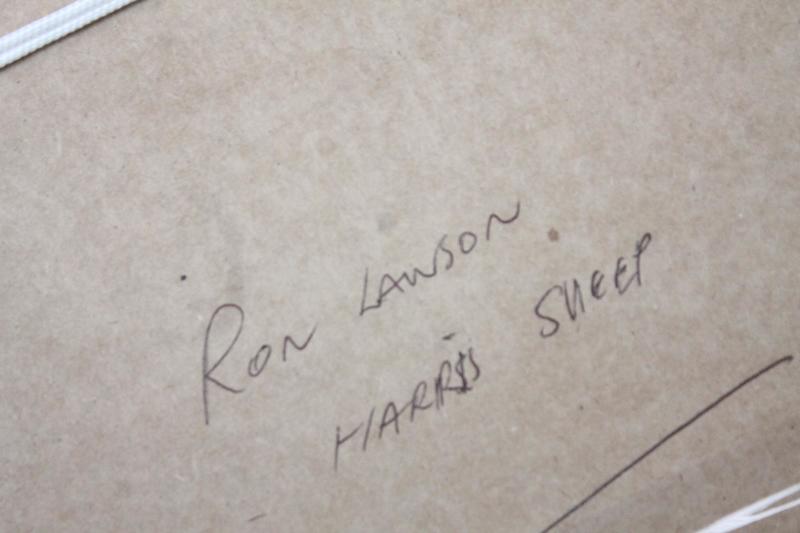 RON LAWSON
HARRIS SHEEP